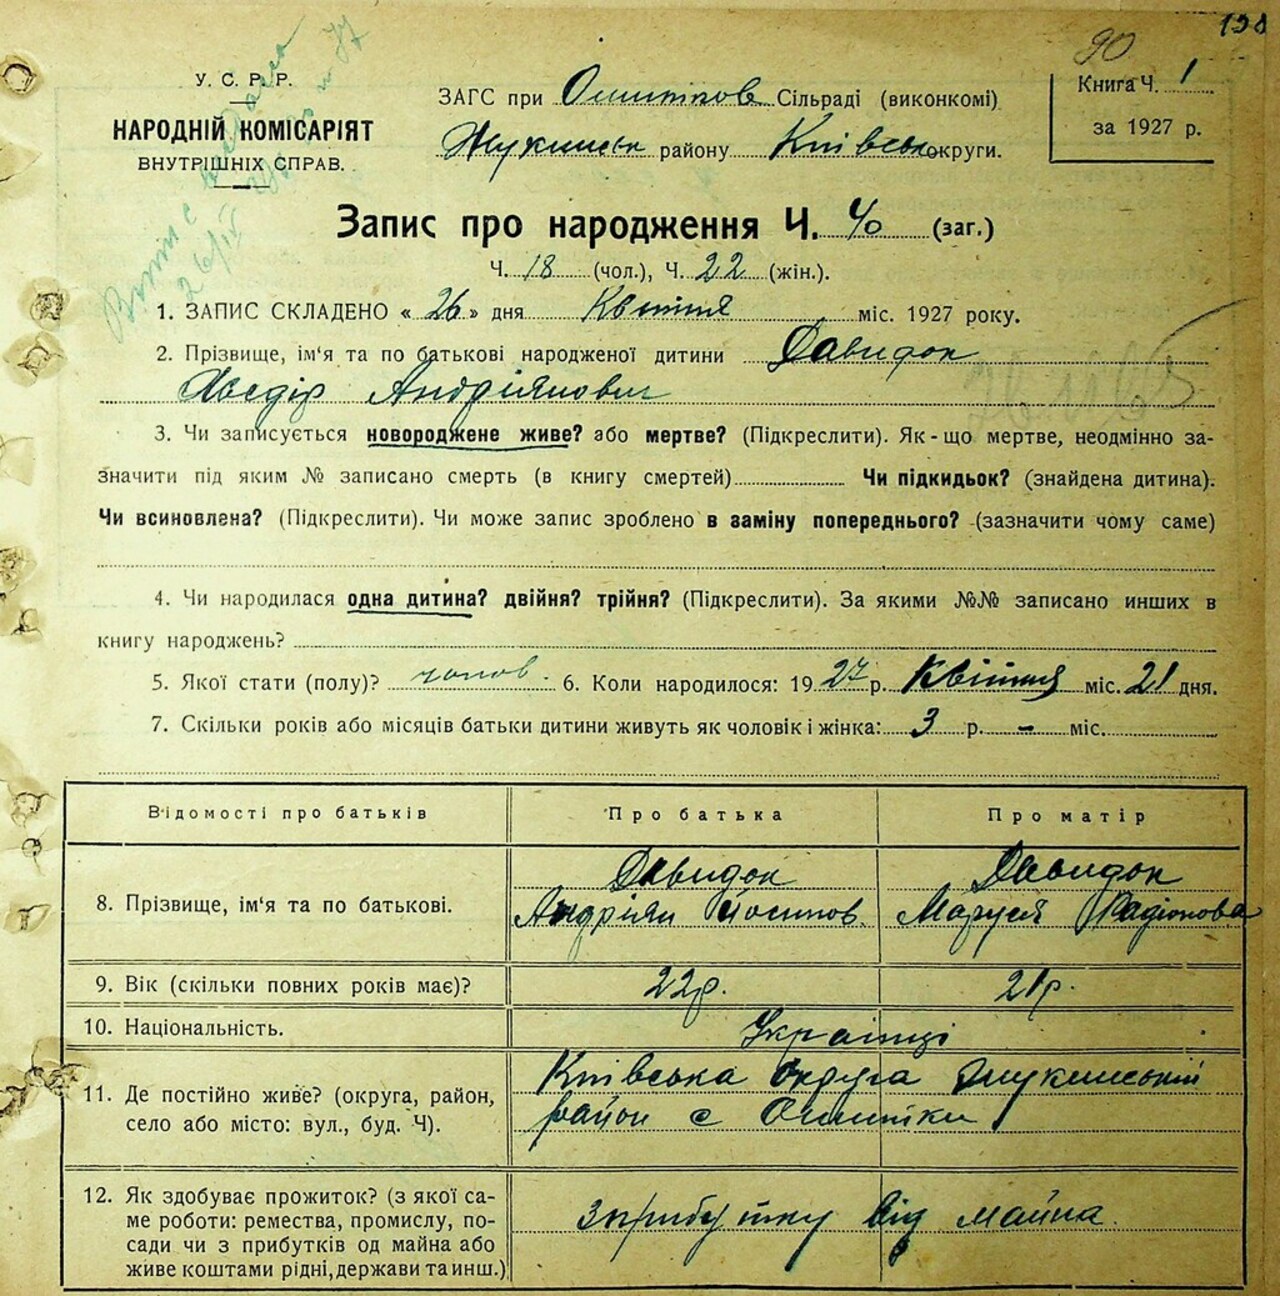 198
90
У. С. Р. Р.
НАРОДНІЙ КОМІСАРІЯТ
ВНУТРІШНІХ СПРАВ.
ЗАГС при Ошитков Сільраді (виконкомі)
Жукинськ району Київськ округи.
Книга Ч. 1
за 1927 р.
Запис про народження Ч. 40 (заг.)
Ч. 18 (чол.), Ч. 22 (жін.).
1. ЗАПИС СКЛАДЕНО « 26 » дня Квітня міс. 1927 року.
2. Прізвище, ім‘я та по батькові народженої дитини Давидок
Хведір Андріянович
3. Чи записується новороджене живе? або мертве? (Підкреслити). Як-що мертве, неодмінно за-
значити під яким № записано смерть (в книгу смертей) Чи підкидьок? (знайдена дитина).
Чи всиновлена? (Підкреслити). Чи може запис зроблено в заміну попереднього? (зазначити чому саме)
4. Чи народилася одна дитина? двійня? трійня? (Підкреслити). За якими №№ записано инших в
книгу народжень?
5. Якої стати (полу)? чолов. 6. Коли народилося: 1927 р. Квітня міс. 21 дня.
7. Скільки років або місяців батьки дитини живуть як чоловік і жінка: 3 р. – міс.
Відомості про батьків Про батька Про матір
8. Прізвище, ім‘я та по батькові. Давидок Андріян Йосипов. Давидок Маруся Радіонова
9. Вік (скільки повних років має)? 22р. 21р.
10. Національність. Українці
11. Де постійно живе? (округа, район,
село або місто: вул., буд. Ч). Київська округа Жукинський
район с Ошитки
12. Як здобуває прожиток? (з якої са-
ме роботи: ремества, промислу, по-
сади чи з прибутків од майна або
живе коштами рідні, держави та инш.) З прибутку від майна.